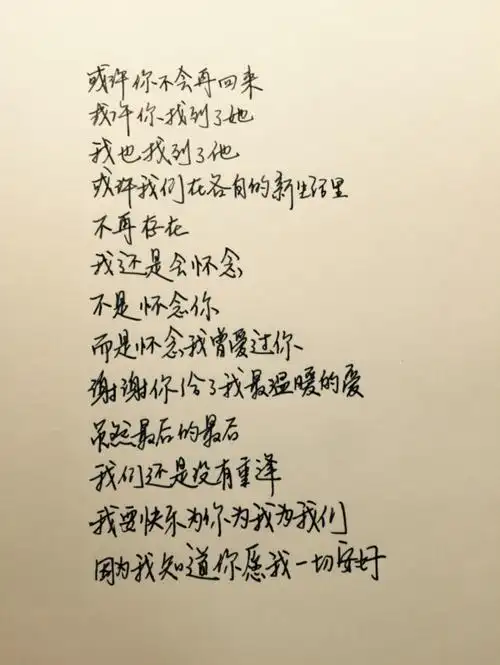 或许你不会再回来
或许你找到了她
我也找到了他
或许我们在各自的新生活里
不再存在
我还是会怀念
不是怀念你
而是怀念我曾爱过你
谢谢你给了我最温暖的爱
虽然最后的最后
我们还是没有重逢
我要快乐为你为我为我们
因为我知道你愿我一切安好